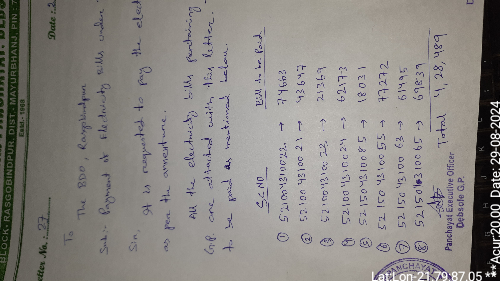 BLOCK-RASGOBINDPUR, DIST. MAYURBHANJ, PIN-7
Estd.-1988
Letter No. 27
Date: 2
To
The BDO, Rasgobindpur
Sub:- Payment of Electricity bills under
Sir,
It is requested to pay the elect
as per the annexture.
All the electricity bills pertaining
G.P. are attached with this letter.
to be paid as mentioned below.
SC NO Bill to be Paid
① 521004310022 → 74663
② 52100431002 → 43647
③ 52100431002 → 21369
④ 521004310024 → 6273
⑤ 521504310085 → 18031
⑥ 521504310055 → 77272
⑦ 521504310063 → 61495
⑧ 521504310065 → 69839
Total 4,28,489
Panchayat Executive Officer
Debsole G.P.
PANCHAYAT
Lat/Lon-21.79:87.05
***Acur:20.00 Date:29-08-2024